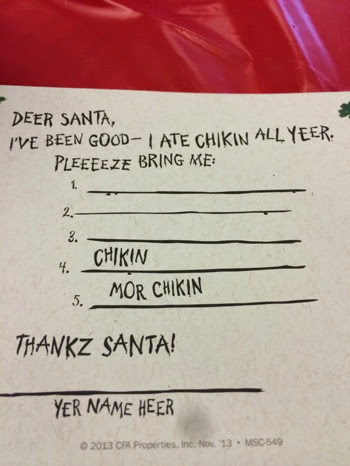 DEER SANTA,
I'VE BEEN GOOD— I ATE CHIKIN ALL YEER.
PLEEEEZE BRING ME:
1.
2.
3.
4. CHIKIN
5. MOR CHIKIN
THANKZ SANTA!
YER NAME HEER
© 2013 CFA Properties, Inc. Nov. '13 • MSC-549